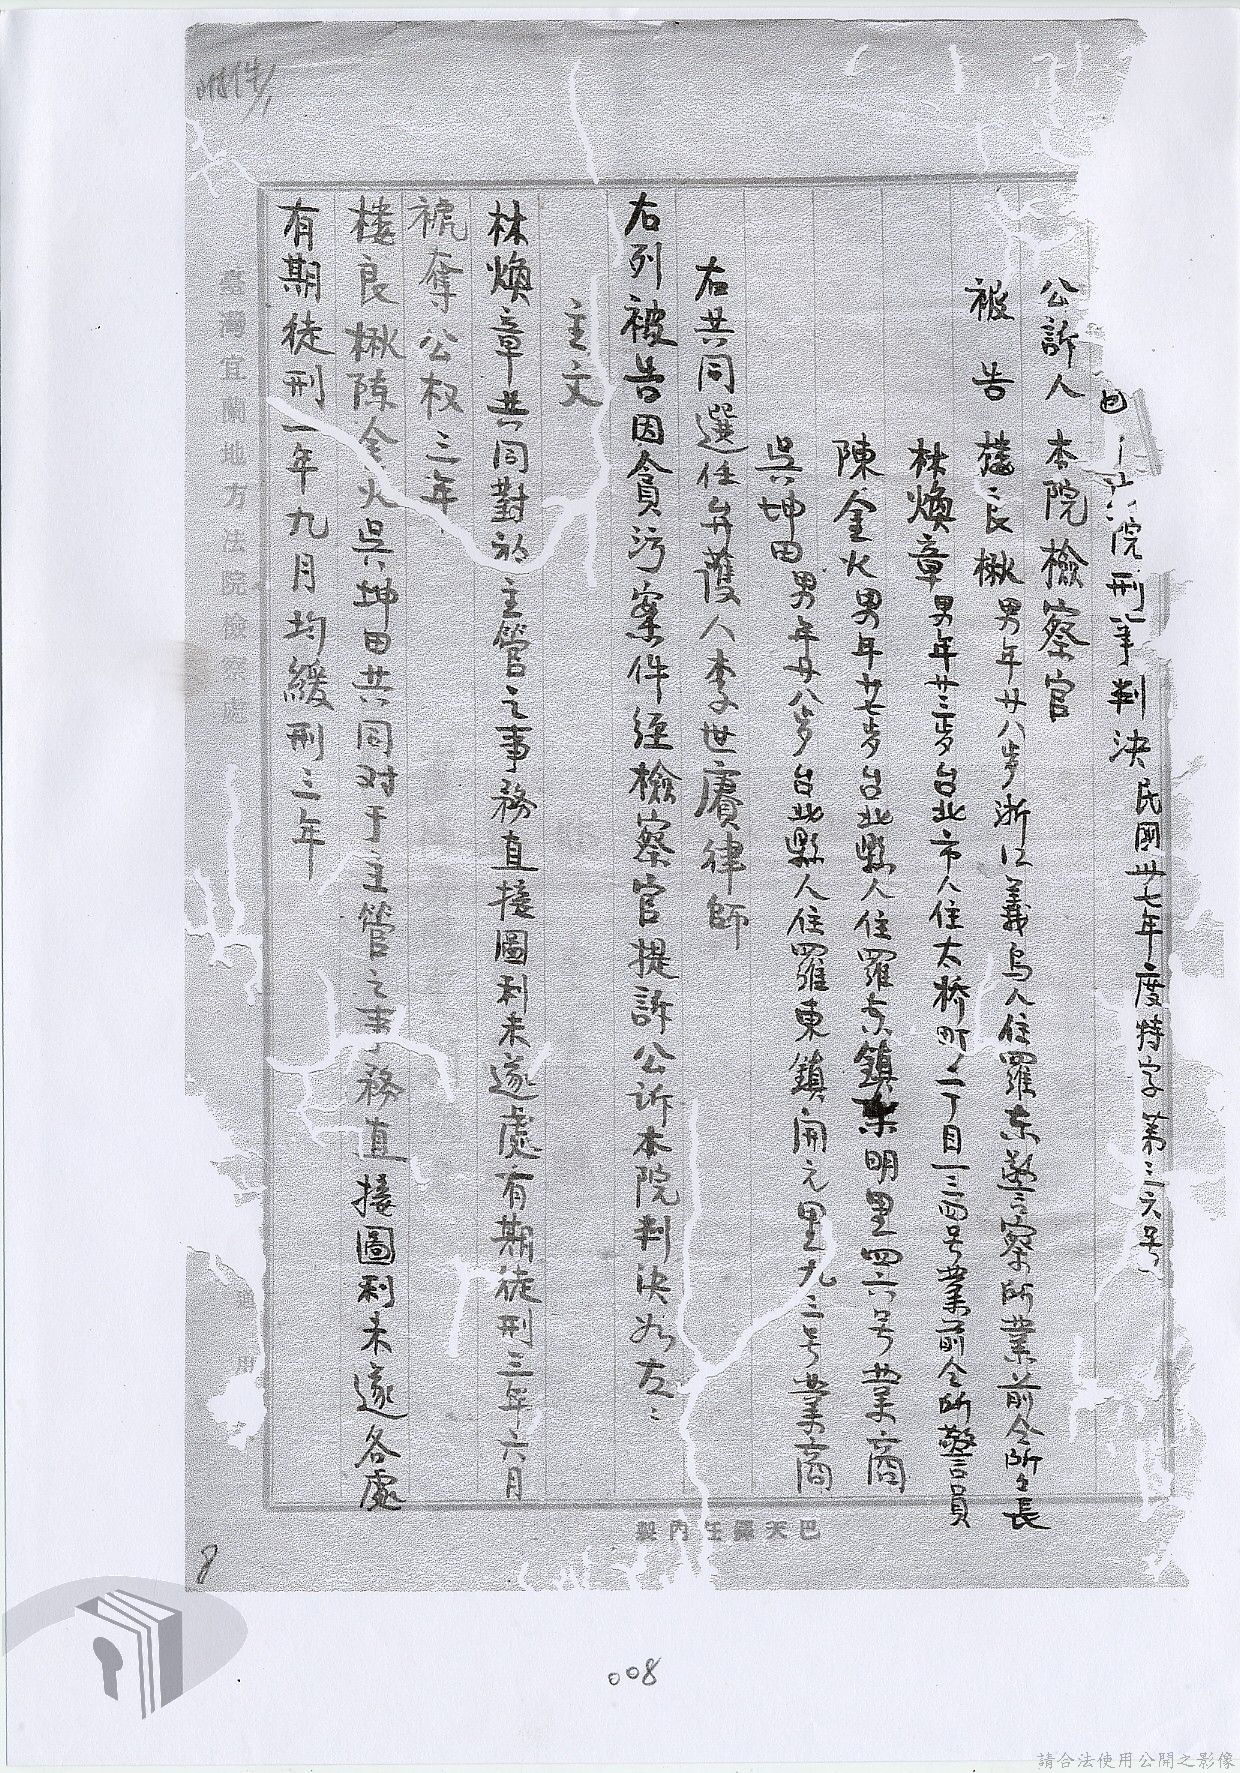 院刑事判決民國卅七年度特字第三六号
公訴人 本院檢察官
被告 樓良楸男年廿八岁浙江義烏人住羅东警察所業前仝所々長
林煥章男年廿三岁台北市人住太橋町二丁目一三四号業前仝所警員
陳金火男年廿七岁台北縣人住羅东鎮东明里四六号業商
吳坤田男年廿八岁台北縣人住羅東鎮開元里九三号業商
右共同選任弁護人李世賡律師
右列被告因貪污案件經檢察官提訴公訴本院判決如左：
主文
林煥章共同對於主管之事務直接圖利未遂處有期徒刑三年六月
褫奪公权三年
樓良楸陈金火吳坤田共同对于主管之事務直接圖利未遂各處
有期徒刑一年九月均緩刑三年
臺灣宜蘭地方法院檢察處
用
附件1
8
008
請合法使用公開之影像